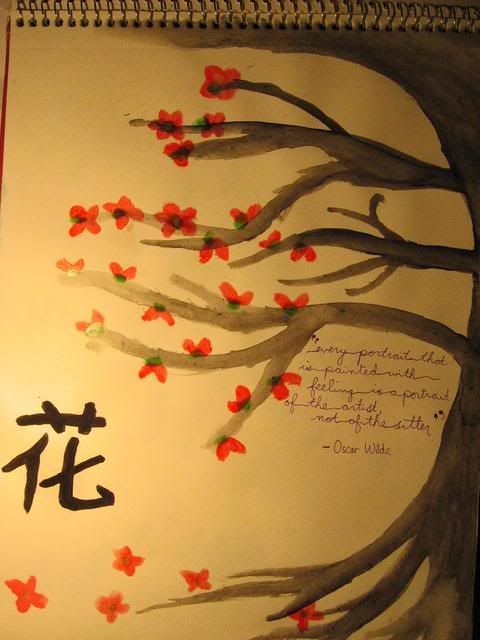 "every portrait that
is painted with
feeling is a portrait
of the artist,
not of the sitter"
- Oscar Wilde
花